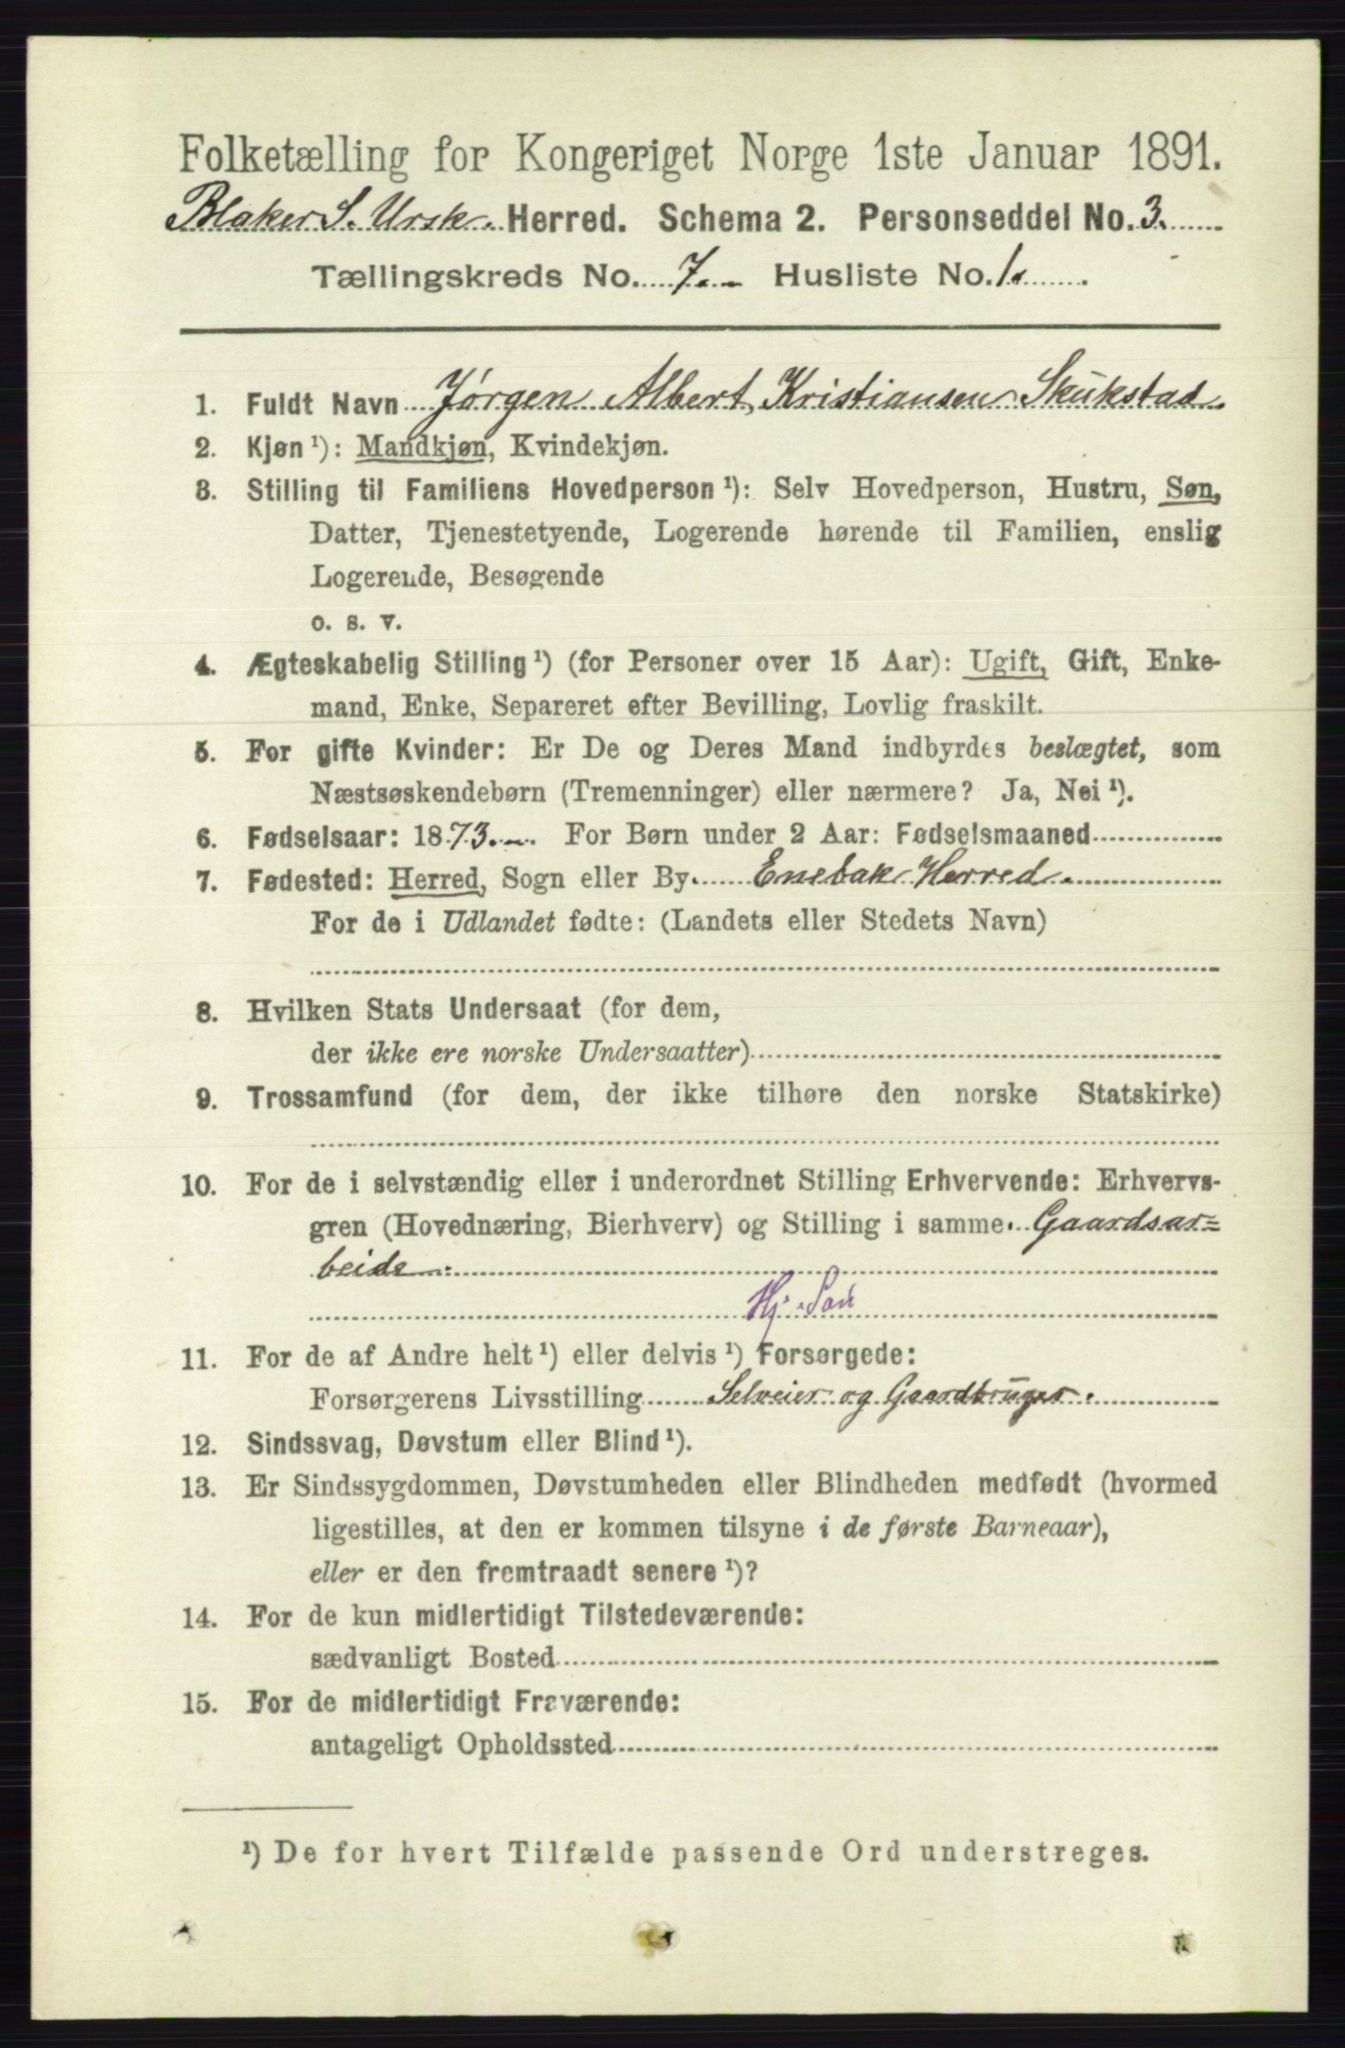 Folketælling for Kongeriget Norge 1ste Januar 1891.
Blaker S. Ursk. Herred. Schema 2. Personseddel No. 3.
Tællingskreds No. 7. Husliste No. 1.
1. Fuldt Navn Jørgen Albert Kristiansen Skukstad.
2. Kjøn ¹): Mandkjøn, Kvindekjøn.
3. Stilling til Familiens Hovedperson ¹): Selv Hovedperson, Hustru, Søn,
Datter, Tjenestetyende, Logerende hørende til Familien, enslig
Logerende, Besøgende
o. s. v.
4. Ægteskabelig Stilling ¹) (for Personer over 15 Aar): Ugift, Gift, Enke-
mand, Enke, Separeret efter Bevilling, Lovlig fraskilt.
5. For gifte Kvinder: Er De og Deres Mand indbyrdes beslægtet, som
Næstsøskendebørn (Tremenninger) eller nærmere? Ja, Nei ¹).
6. Fødselsaar: 1873. For Børn under 2 Aar: Fødselsmaaned
7. Fødested: Herred, Sogn eller By. Enebak Herred.
For de i Udlandet fødte: (Landets eller Stedets Navn)
8. Hvilken Stats Undersaat (for dem,
der ikke ere norske Undersaatter)
9. Trossamfund (for dem, der ikke tilhøre den norske Statskirke)
10. For de i selvstændig eller i underordnet Stilling Erhvervende: Erhvervs-
gren (Hovednæring, Bierhverv) og Stilling i samme. Gaardsar=
beide.
Hj. Søn
11. For de af Andre helt ¹) eller delvis ¹) Forsørgede:
Forsørgerens Livsstilling Selveier og Gaardbruger.
12. Sindssvag, Døvstum eller Blind ¹).
13. Er Sindssygdommen, Døvstumheden eller Blindheden medfødt (hvormed
ligestilles, at den er kommen tilsyne i de første Barneaar),
eller er den fremtraadt senere ¹)?
14. For de kun midlertidigt Tilstedeværende:
sædvanligt Bosted
15. For de midlertidigt Fraværende:
antageligt Opholdssted
¹) De for hvert Tilfælde passende Ord understreges.